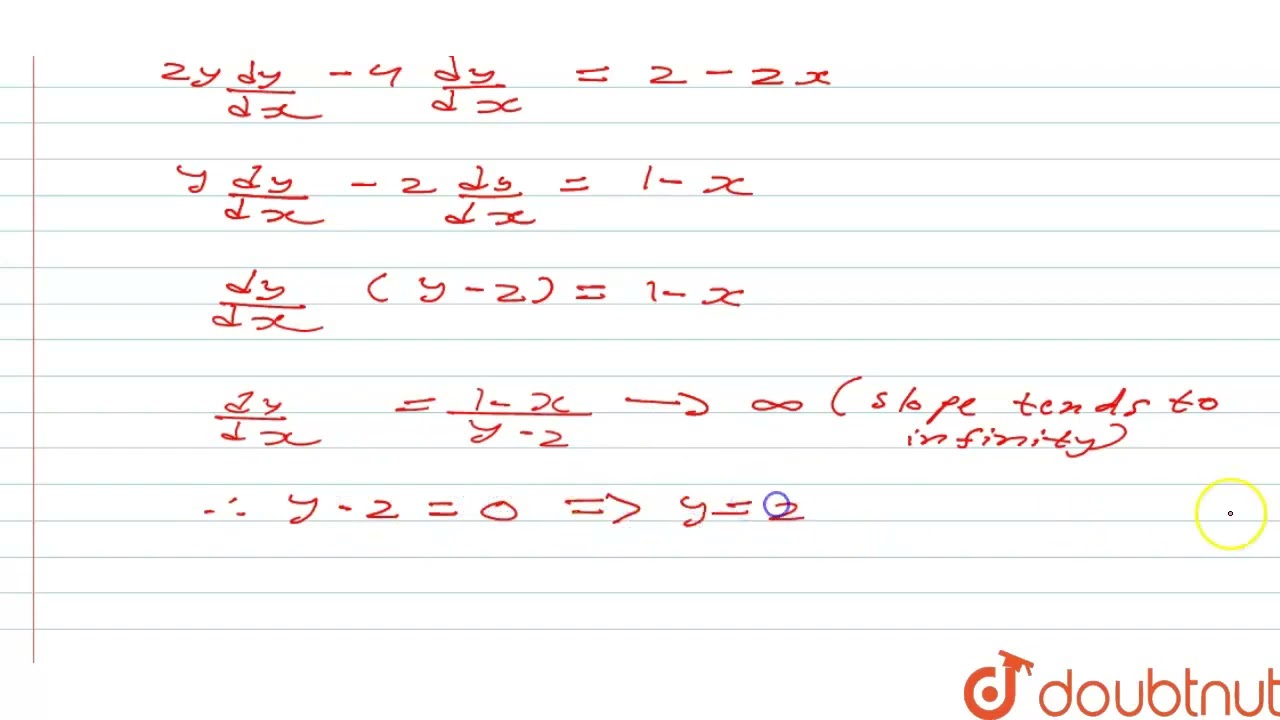 2y dy/dx - 4 dy/dx = 2 - 2x
y dy/dx - 2 dy/dx = 1 - x
dy/dx (y - 2) = 1 - x
dy/dx = 1-x/y-2 → ∞ (slope tends to
infinity)
∴ y - 2 = 0 => y = 2
doubtnut